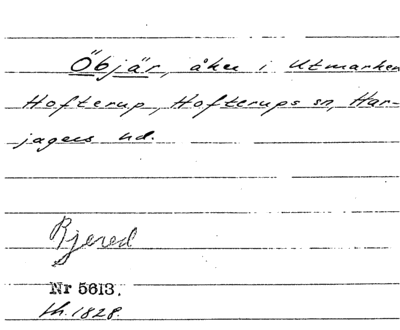 Öbjär, åker i Utmarken
Hofterup, Hofterups sn, Har-
jagers hd.
Bjered
Nr 5613.
th. 1828.